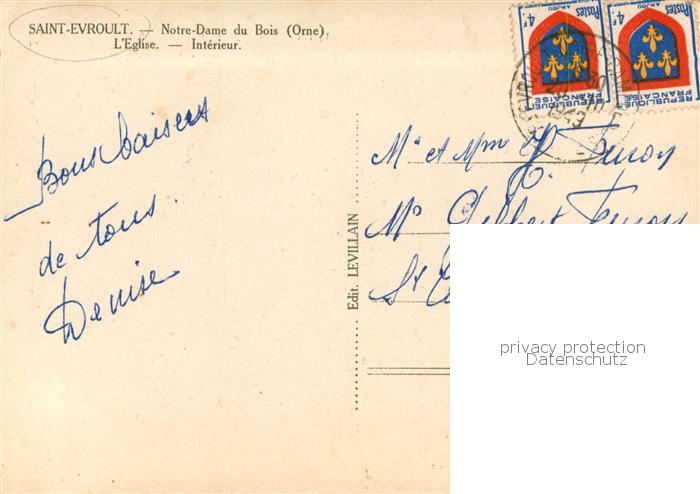 SAINT-EVROULT. — Notre-Dame du Bois (Orne).
L'Eglise. — Intérieur.
Postes 4F ANJOU
REPUBLIQUE FRANÇAISE
Postes 4F ANJOU
REPUBLIQUE FRANÇAISE
1949
Bons baisers
de tous.
Denise
Edit. LEVILLAIN
Mr et Mme
Mr
St
privacy protection
Datenschutz